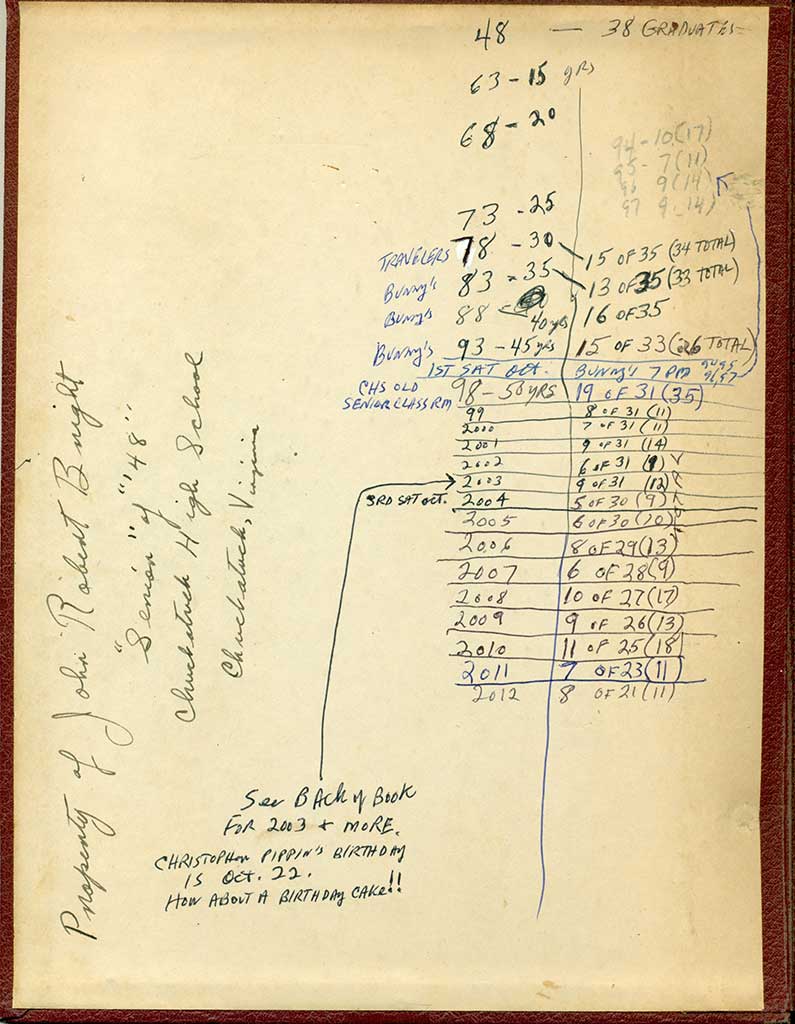 48 — 38 GRADUATES
63 - 15 yrs
68 - 20
94 - 10 (17)
95 - 7 (11)
96 9 (14)
97 9 (14)
73 - 25
TRAVELERS 78 - 30 15 OF 35 (34 TOTAL)
Bunny's 83 - 35 13 OF 35 (33 TOTAL)
Bunny's 88 - 40 yrs 16 OF 35
Bunny's 93 - 45 yrs 15 OF 33 (26 TOTAL)
1ST SAT OCT. Bunny's 7 PM 94, 95 96, 97
CHS OLD SENIOR CLASS RM 98 - 50 YRS 19 OF 31 (35)
99 8 OF 31 (11)
2000 7 OF 31 (11)
2001 9 OF 31 (14)
2002 6 OF 31 (9)
2003 9 OF 31 (12)
3RD SAT OCT. 2004 5 OF 30 (9)
2005 6 OF 30 (10)
2006 8 OF 29 (13)
2007 6 OF 28 (9)
2008 10 OF 27 (17)
2009 9 OF 26 (13)
2010 11 OF 25 (18)
2011 7 OF 23 (11)
2012 8 OF 21 (11)
See BACK of BOOK
FOR 2003 + MORE.
CHRISTOPHER PIPPIN'S BIRTHDAY
IS OCT. 22.
HOW ABOUT A BIRTHDAY CAKE!!
Property of John Robert Bunight
"Senior" of "'48"
Chuckatuck High School
Chuckatuck, Virginia